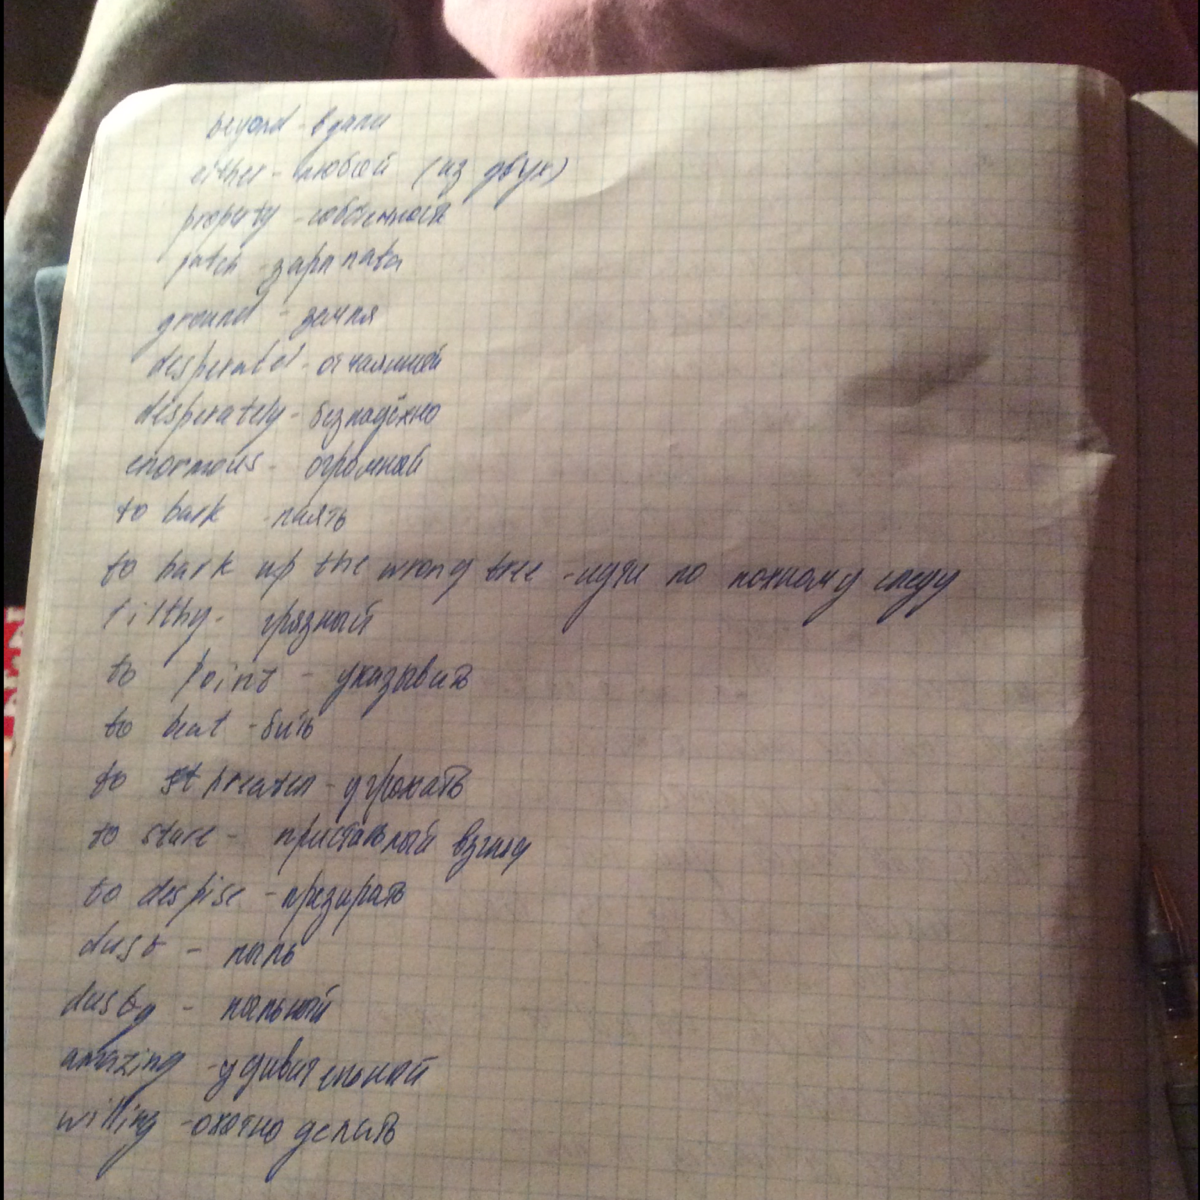 beyond - вдали
either - любой (из двух)
property - собственность
patch - зарплата
ground - земля
desperatel - отчаянный
desperately - безнадёжно
enormous - огромный
to bark - лаять
to bark up the wrong tree - идти по ложному следу
filthy - грязный
to point - указывать
to beat - бить
to threaten - угрожать
to stare - пристальный взгляд
to despise - презирать
dust - пыль
dusty - пыльный
amazing - удивительный
willing - охотно делать